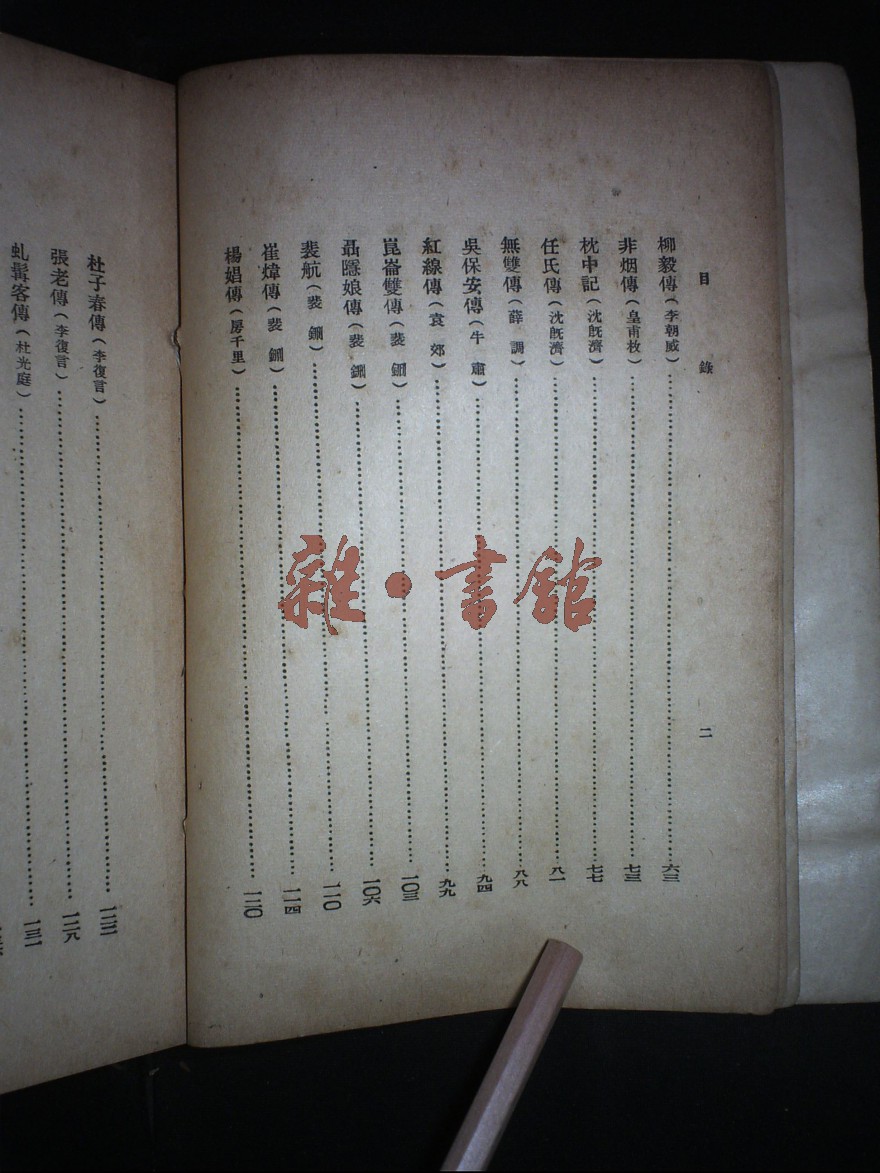 目錄 二
柳毅傳(李朝威)六三
非烟傳(皇甫枚)七三
枕中記(沈旣濟)七七
任氏傳(沈旣濟)八一
無雙傳(薛調)八八
吳保安傳(牛肅)九四
紅線傳(袁郊)九九
崑崙雙傳(裴鉶)一〇三
聶隱娘傳(裴鉶)一〇六
裴航(裴鉶)一一〇
崔煒傳(裴鉶)一一四
楊娼傳(房千里)一二〇
杜子春傳(李復言)一二二
張老傳(李復言)一二八
虬髯客傳(杜光庭)一三一
雜·書館